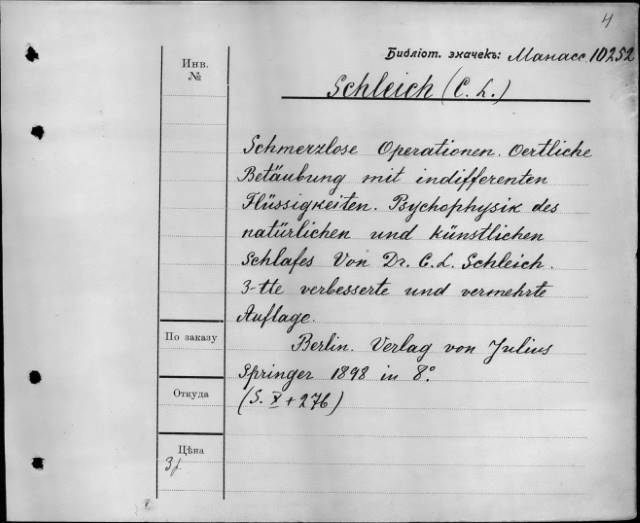 4
Библіот. значекъ: Манасс. 10252
Инв.
№
Schleich (C. L.)
Schmerzlose Operationen. Oertliche
Betäubung mit indifferenten
Flüssigkeiten. Psychophysik des
natürlichen und künstlichen
Schlafes Von Dr. C. L. Schleich.
3-tte verbesserte und vermehrte
Auflage.
По заказу
Berlin. Verlag von Julius
Springer 1898 in 8°.
Откуда
(S. X + 276)
Цѣна